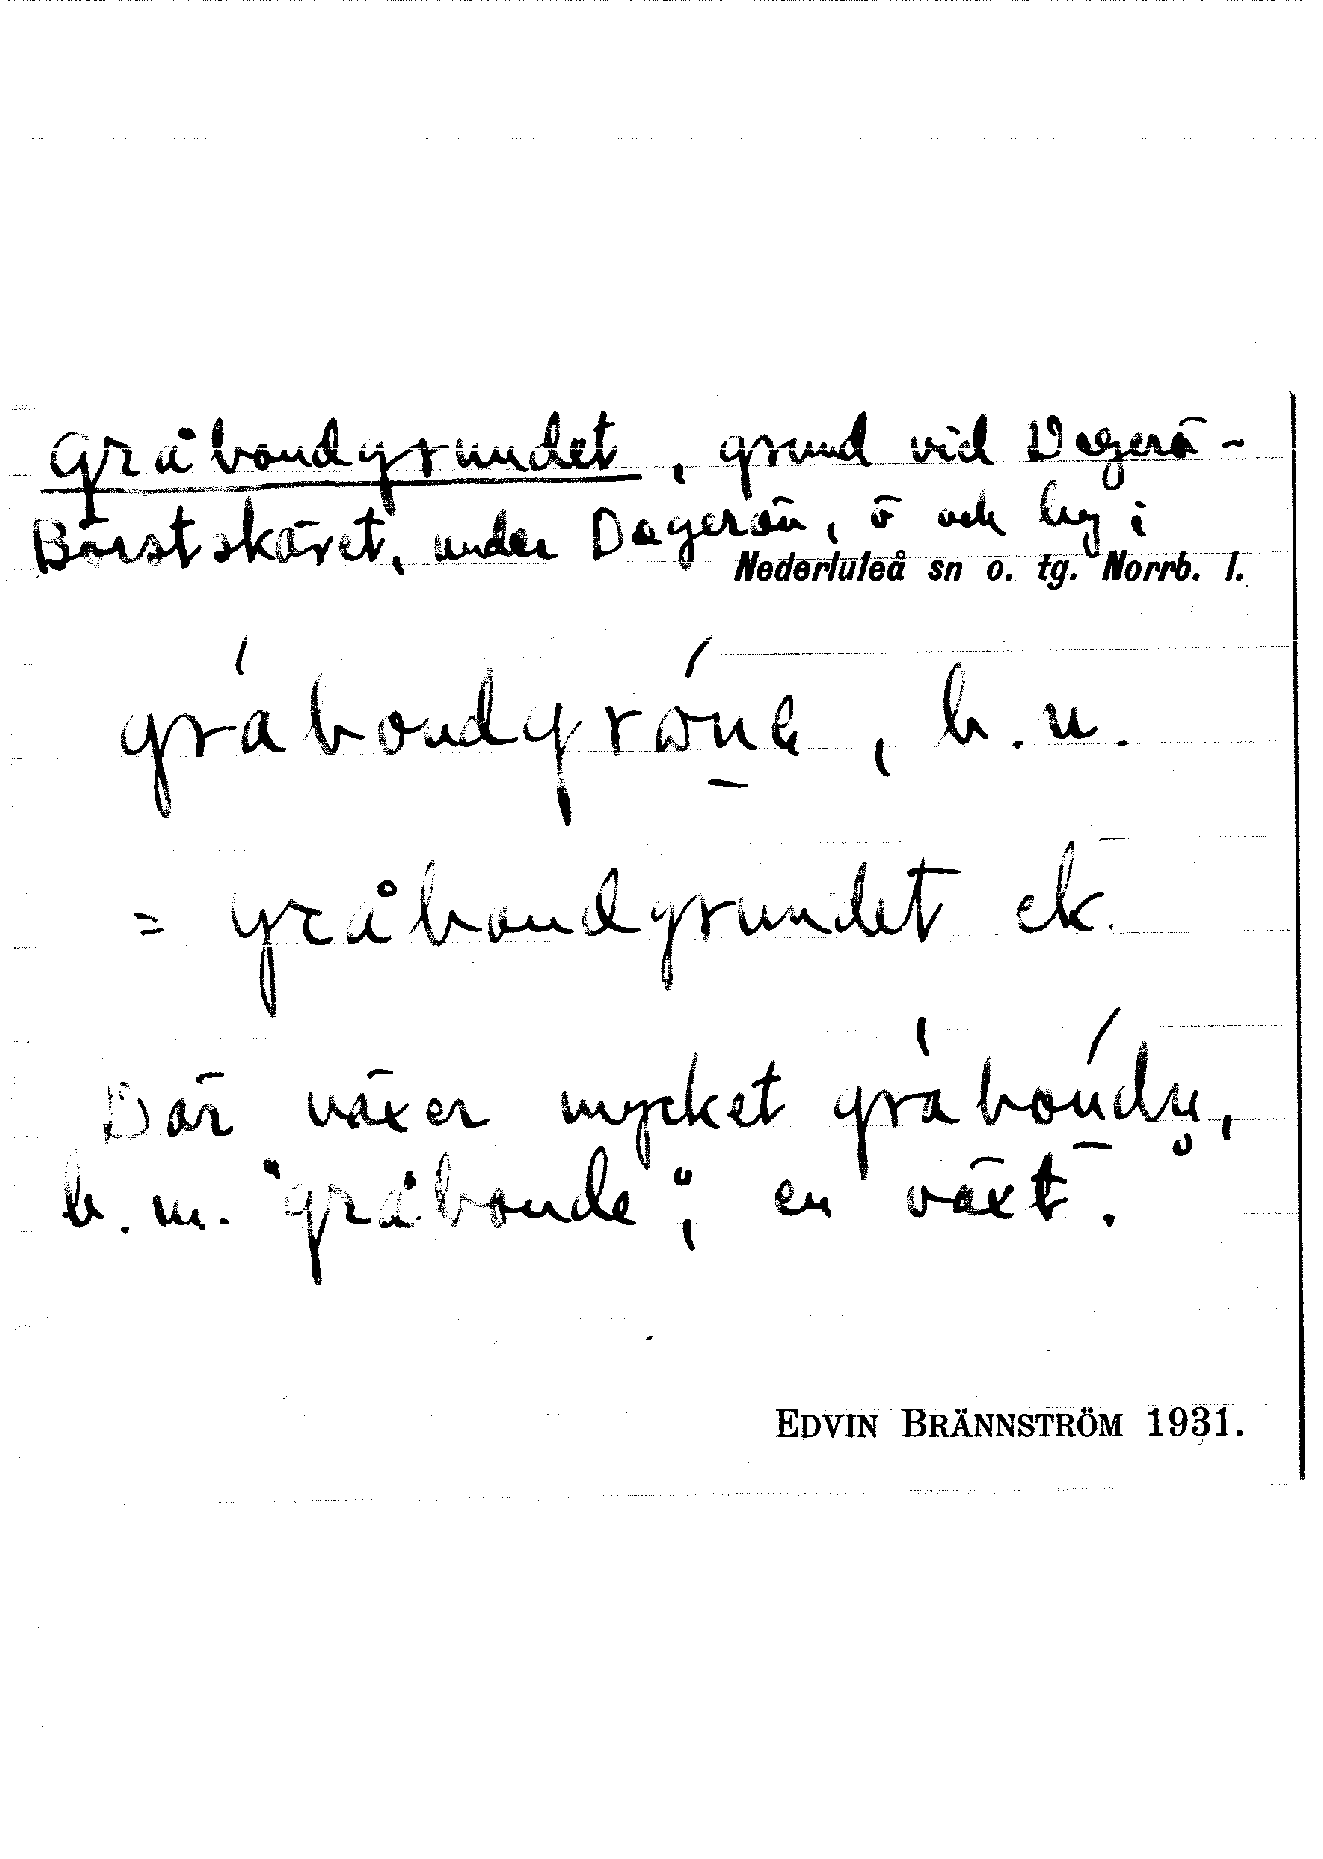 Gråbondgrundet, grund vid Dagerö-
Börstskäret, under Dagerön, ö och by i
Nederluleå sn o. tg. Norrb. l.
b. n.
= gråbondgrundet ek.
Där växer mycket
b. m. "gråbonde"; en växt.
EDVIN BRÄNNSTRÖM 1931.